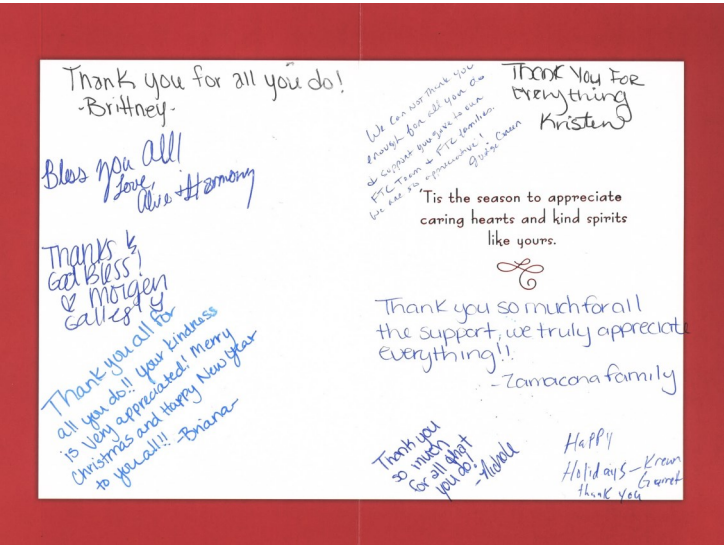 Thank you for all you do!
-Brittney-
Bless you all!
Love,
Thanks &
God Bless!
♡ Morgen
Thank you all for
all you do!! Your kindness
is very appreciated! Merry
Christmas and Happy New Year
to you all!! -Briana-
We can not thank you
enough for all you do
& support you give to our
FTC Team & FTC families.
We are so appreciative!
Thank You For
Everything
Kristen
'Tis the season to appreciate
caring hearts and kind spirits
like yours.
Thank you so much for all
the support, we truly appreciate
everything!!
-Zamacona family
Thank you
so much
for all that
you do!
-Nichole
Happy
Holidays -
thank you